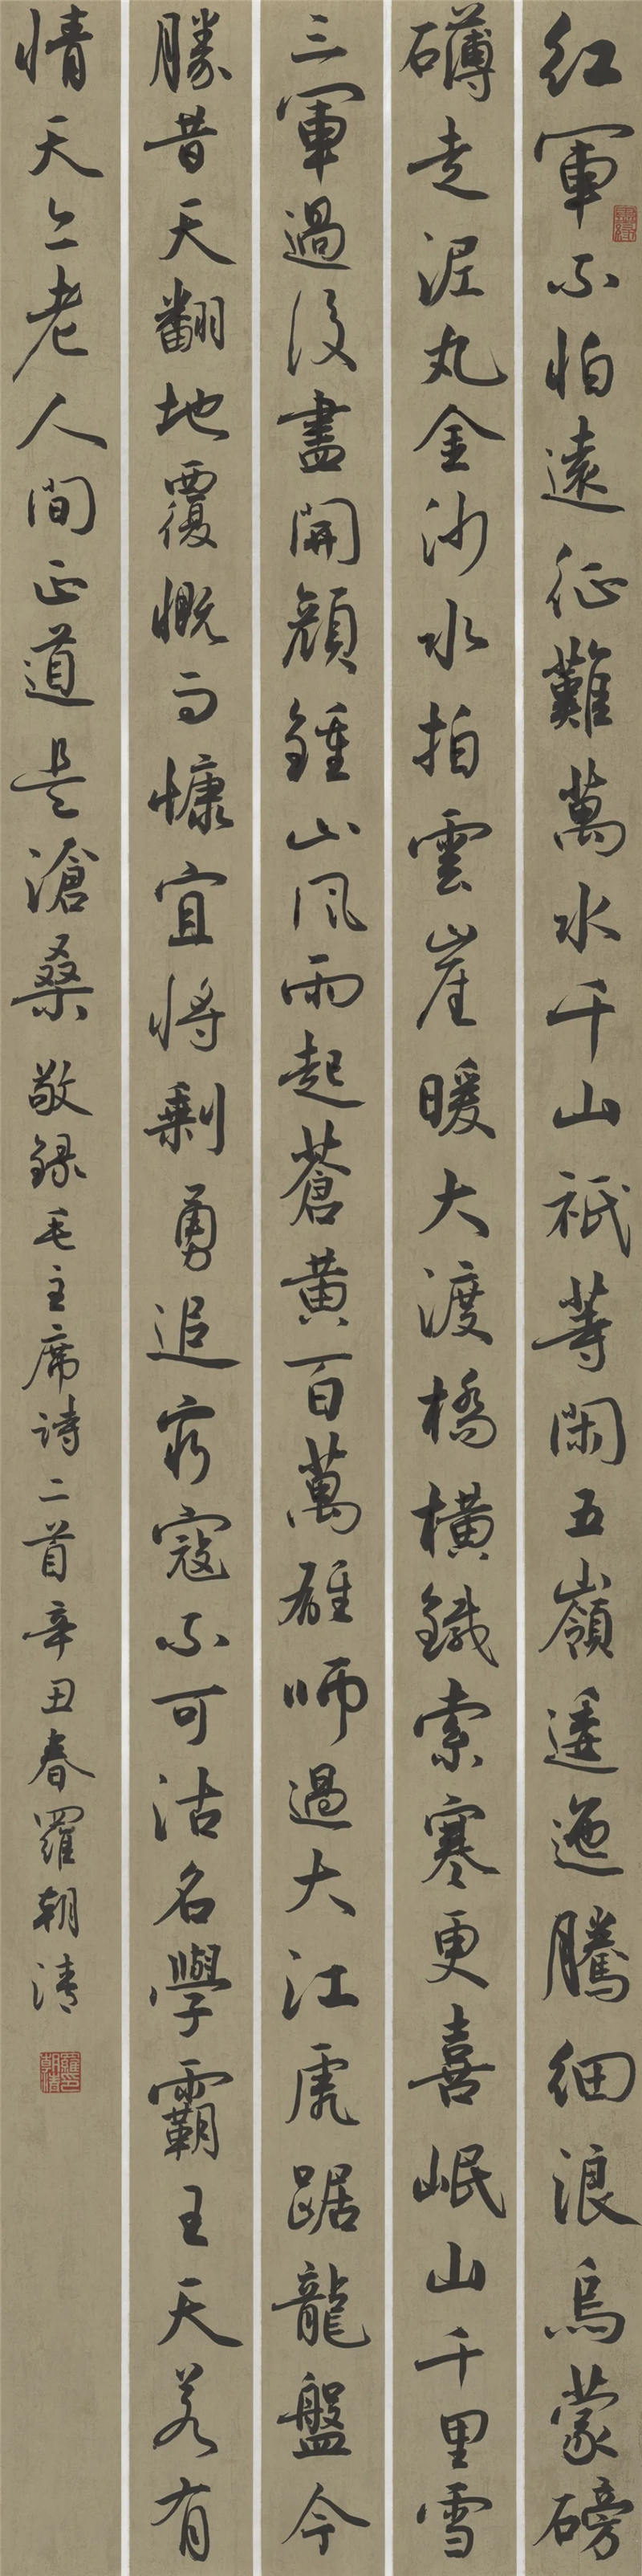 紅軍不怕遠征難萬水千山祇等閑五嶺逶迤騰細浪烏蒙磅
礴走泥丸金沙水拍雲崖暖大渡橋橫鐵索寒更喜岷山千里雪
三軍過後盡開顏鍾山風雨起蒼黃百萬雄師過大江虎踞龍盤今
勝昔天翻地覆慨而慷宜將剩勇追窮寇不可沽名學霸王天若有
情天亦老人間正道是滄桑敬録毛主席詩二首辛丑春羅朝清
羅朝清印